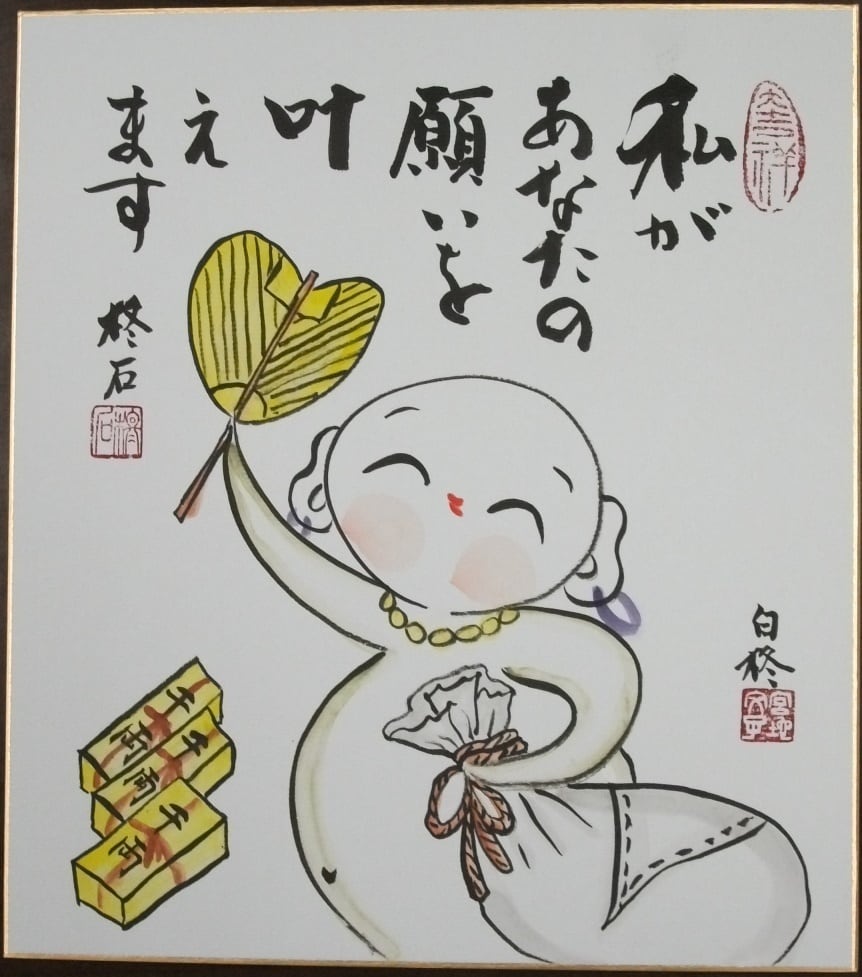 吉祥
私が
あなたの
願いを
叶
え
ます
柊石
白柊
千両
千両
千両